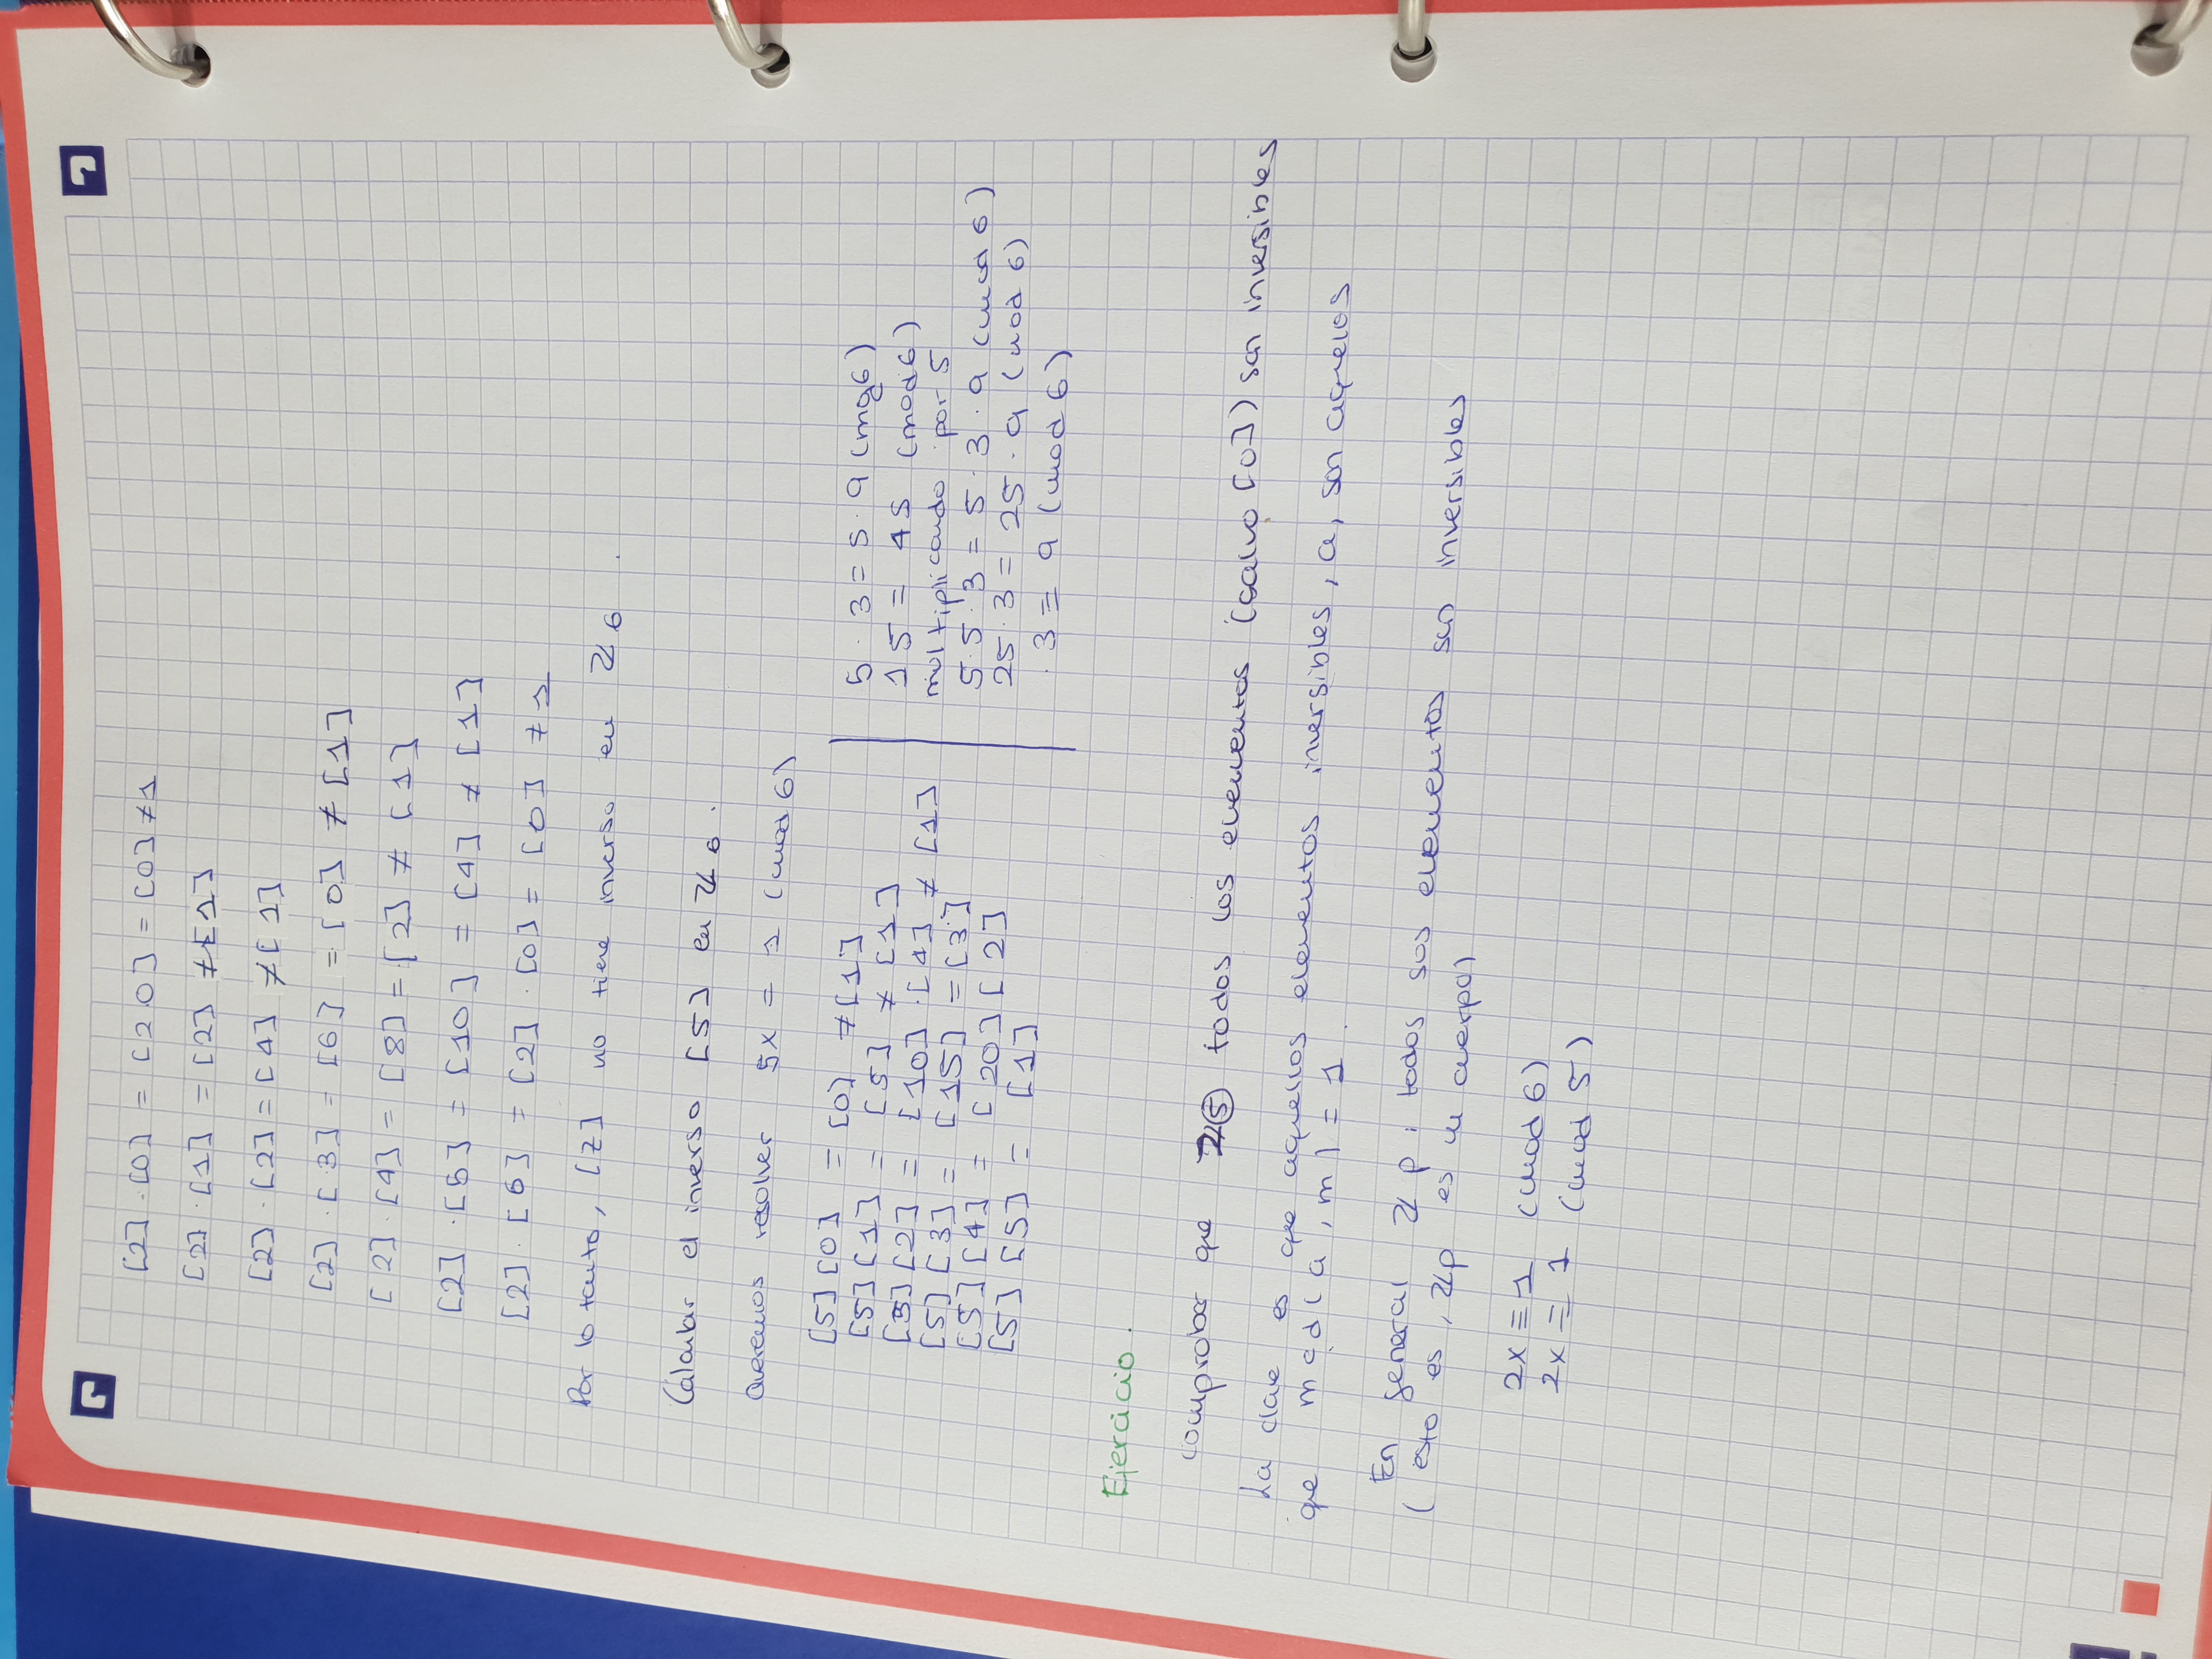 [2]·[0] = [2 0] = [0] ≠ 1
[2]·[1] = [2] ≠ [1]
[2]·[2] = [4] ≠ [1]
[2]·[3] = [6] = [0] ≠ [1]
[2]·[4] = [8] = [2] ≠ [1]
[2]·[5] = [10] = [4] ≠ [1]
[2]·[6] = [2]·[0] = [0] ≠ 1
Por lo tanto, [2] no tiene inverso en ℤ6.
Calcular el inverso [5] en ℤ6.
Queremos resolver 5x = 1 (mod 6)
[5][0] = [0] ≠ [1]
[5][1] = [5] ≠ [1]
[5][2] = [10]·[4] ≠ [1]
[5][3] = [15] = [3]
[5][4] = [20][2]
[5][5] = [1]
5·3 = 5·9 (mod 6)
15 = 45 (mod 6)
multiplicando por 5
5·5·3 = 5·3·9 (mod 6)
25·3 = 25·9 (mod 6)
3 ≡ 9 (mod 6)
Ejercicio.
Comprobar que ℤ5 todos los elementos (salvo [0]) son inversibles
La clave es que aquellos elementos inversibles, a, son aquellos
que mcd(a, m) = 1.
En general ℤp: todos sus elementos son inversibles
(esto es, ℤp es un cuerpo)
2x ≡ 1 (mod 6)
2x ≡ 1 (mod 5)